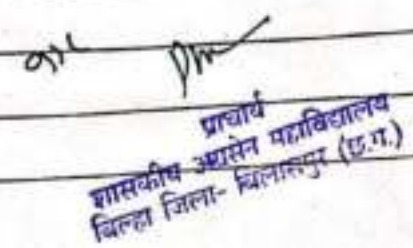 प्राचार्य
शासकीय अग्रसेन महाविद्यालय
बिल्हा जिला- बिलासपुर (छ.ग.)